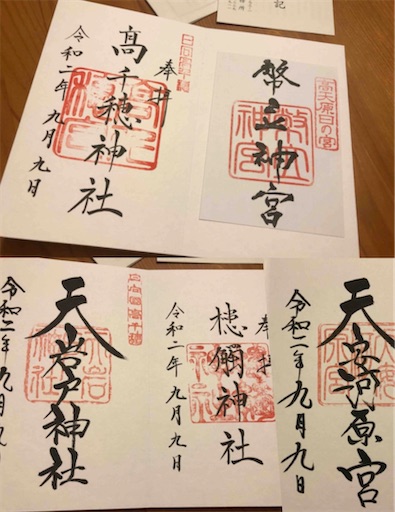 記
高天原日の宮
幣立神宮
奉拝
髙千穂神社
令和二年九月九日
天安河原宮
令和二年九月九日
奉拝
槵觸神社
令和二年九月九日
天岩戸神社
令和二年九月九日